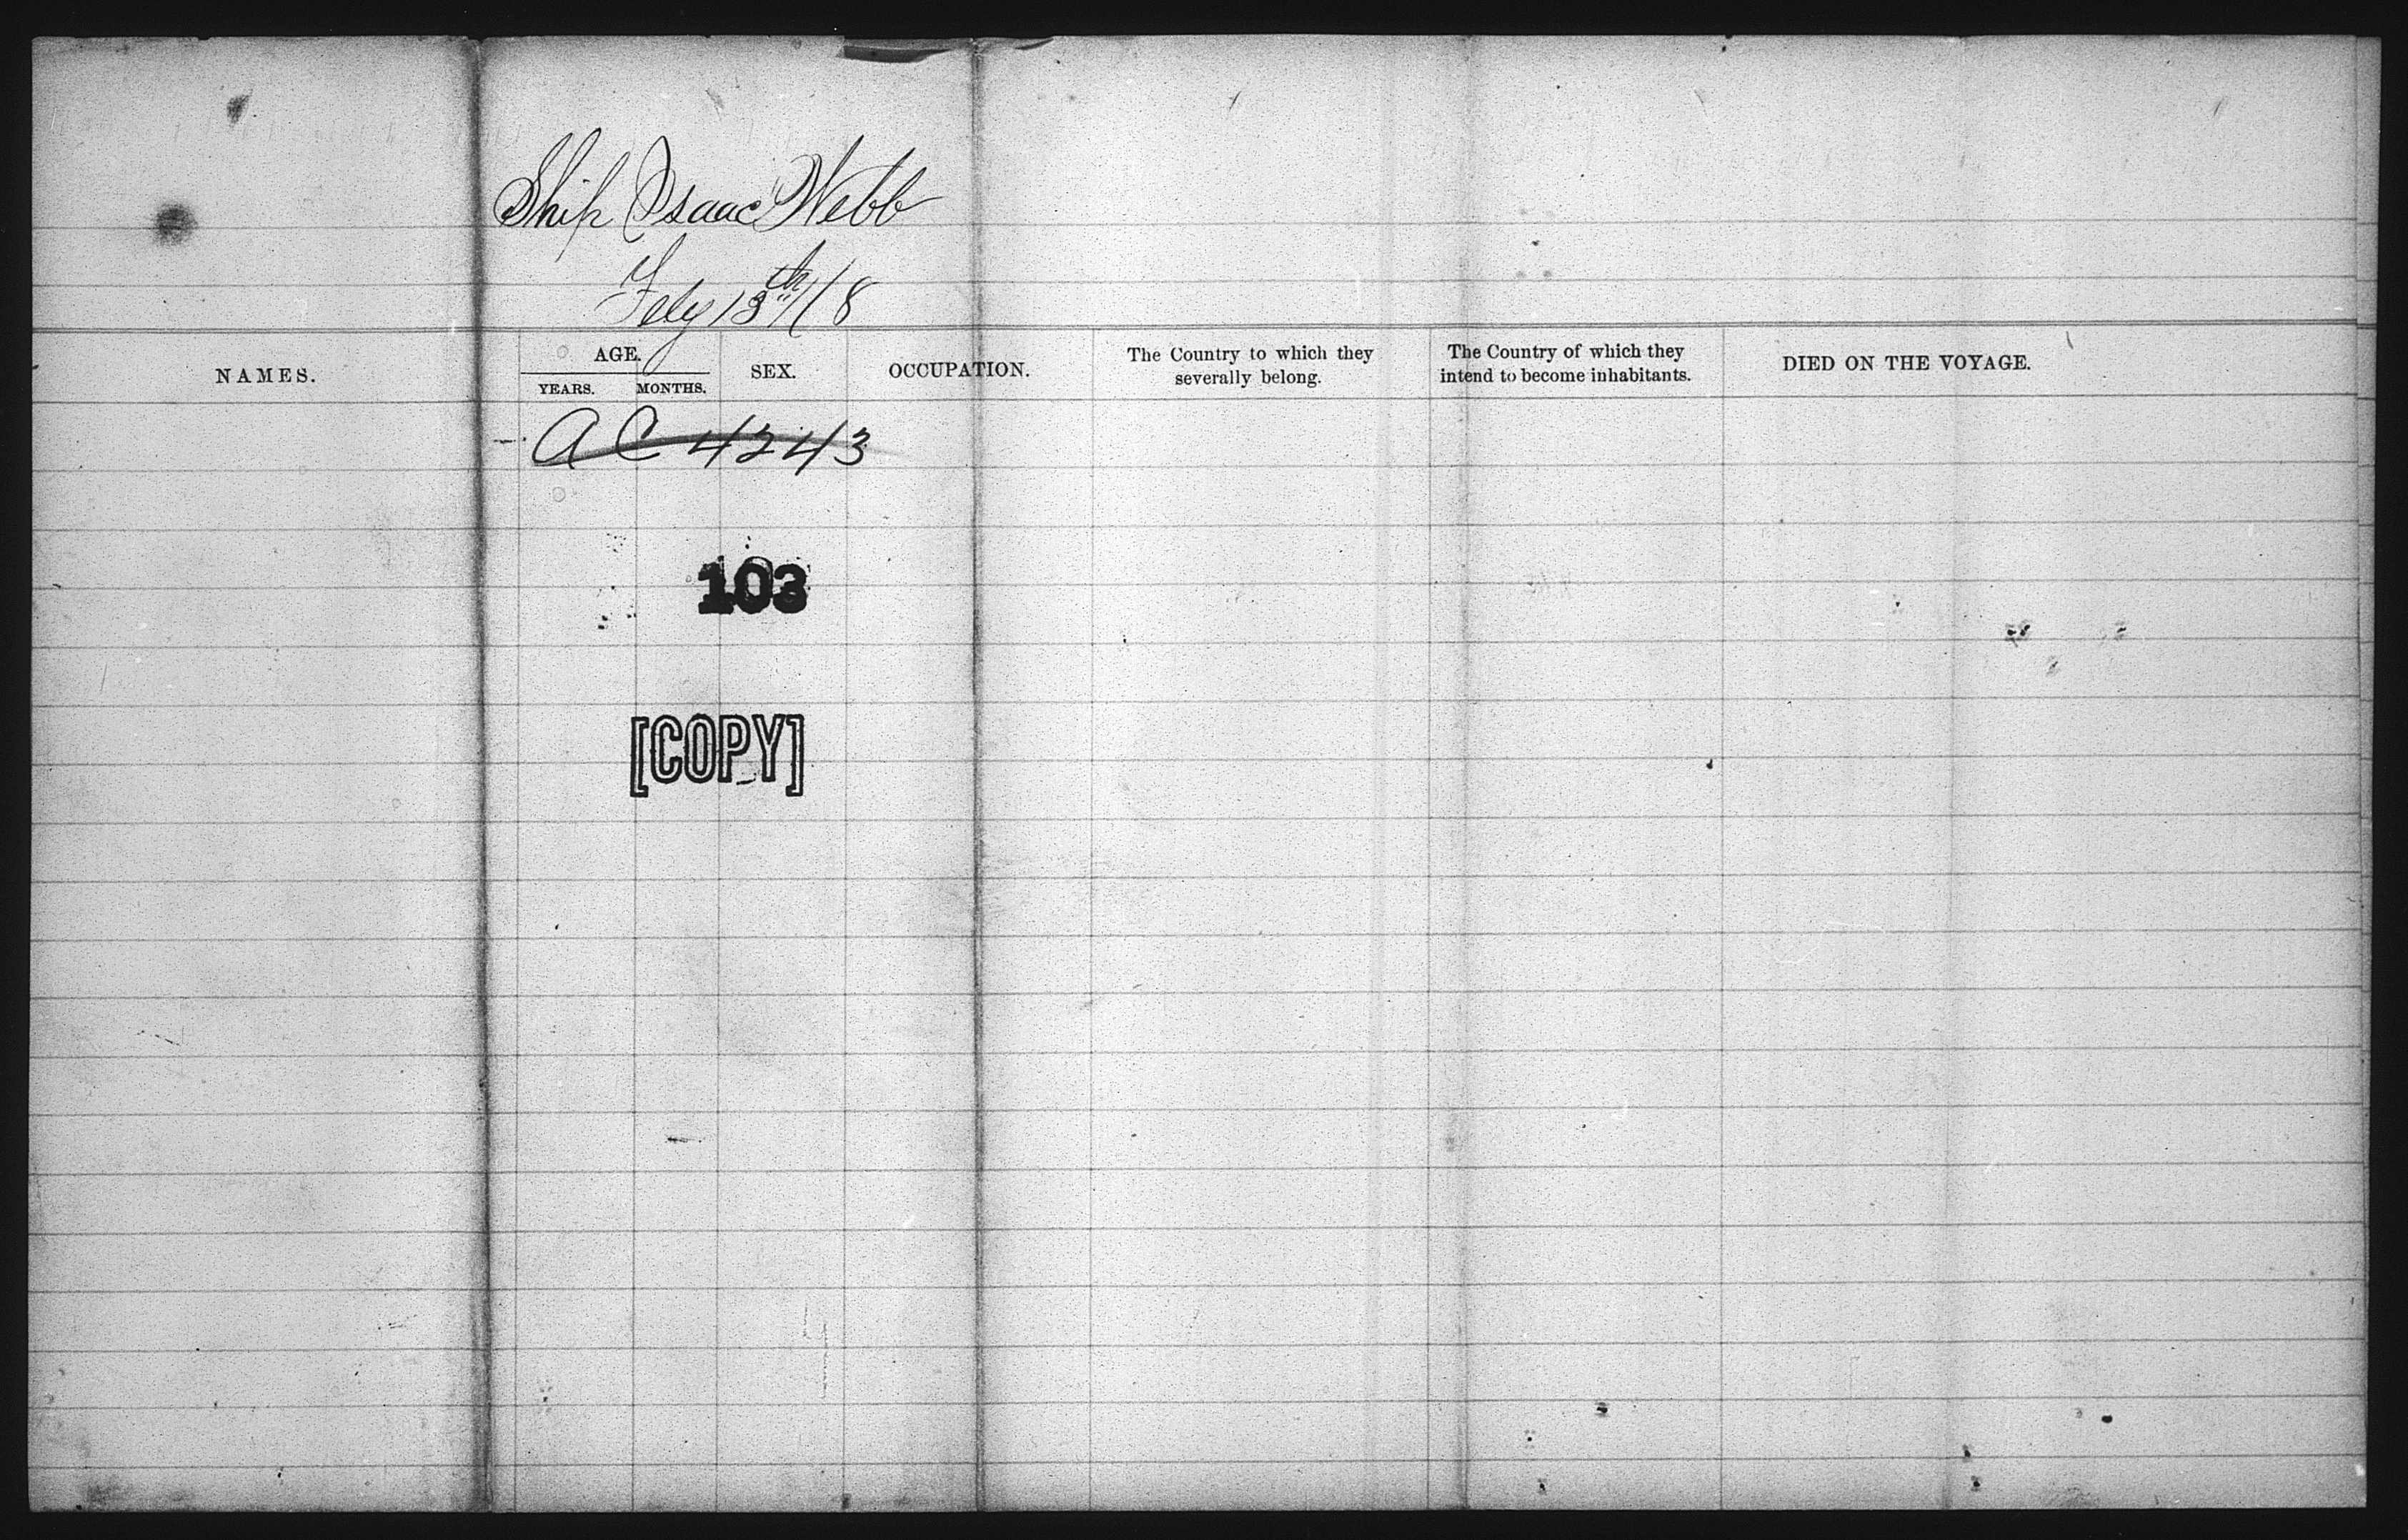 Ship Isaac Webb
Feby 13th /
NAMES.
AGE.
YEARS.
MONTHS.
SEX.
OCCUPATION.
The Country to which they
severally belong.
The Country of which they
intend to become inhabitants.
DIED ON THE VOYAGE.
A C 4243
103
[COPY]